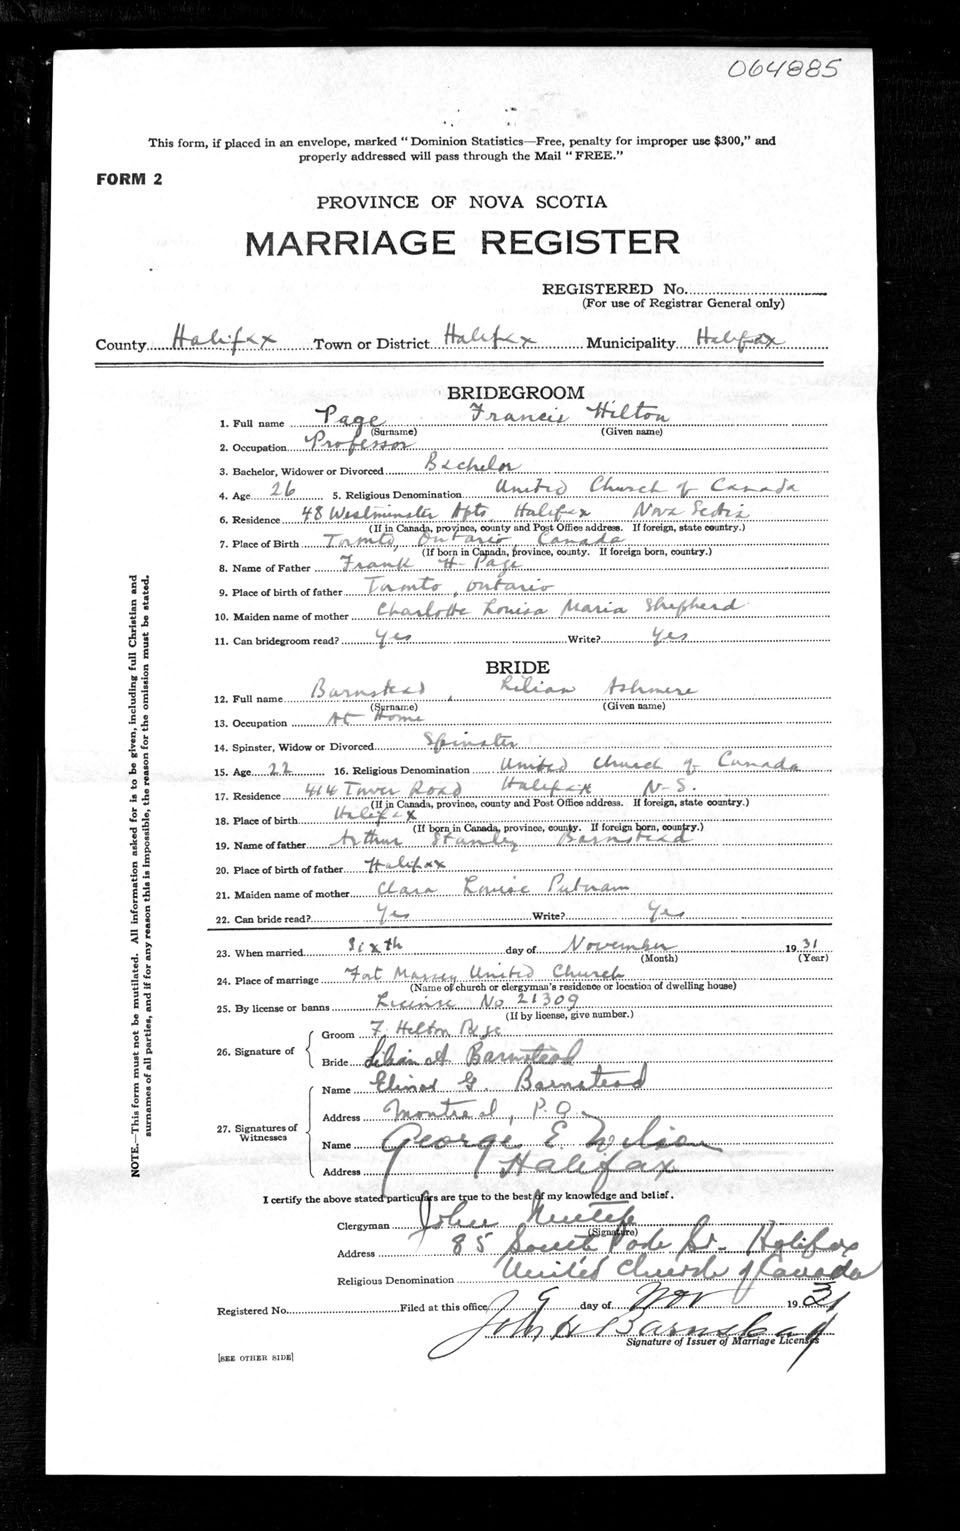 064885
This form, if placed in an envelope, marked "Dominion Statistics—Free, penalty for improper use $300," and
properly addressed will pass through the Mail "FREE."
FORM 2
PROVINCE OF NOVA SCOTIA
MARRIAGE REGISTER
REGISTERED No.
(For use of Registrar General only)
County Halifax Town or District Halifax Municipality Halifax
BRIDEGROOM
1. Full name Page Francis Hilton
(Surname) (Given name)
2. Occupation Professor
3. Bachelor, Widower or Divorced Bachelor
4. Age 26 5. Religious Denomination United Church of Canada
6. Residence 48 Westminster Apts. Halifax Nova Scotia
(If in Canada, province, county and Post Office address. If foreign, state country.)
7. Place of Birth Toronto, Ontario, Canada
(If born in Canada, province, county. If foreign born, country.)
8. Name of Father Frank H. Page
9. Place of birth of father Toronto, Ontario
10. Maiden name of mother Charlotte Louisa Maria Shepherd
11. Can bridegroom read? Yes Write? Yes
BRIDE
12. Full name Barnstead, Lilian Ashmere
(Surname) (Given name)
13. Occupation At Home
14. Spinster, Widow or Divorced Spinster
15. Age 22 16. Religious Denomination United Church of Canada
17. Residence 414 Tower Road Halifax N.S.
(If in Canada, province, county and Post Office address. If foreign, state country.)
18. Place of birth Halifax
(If born in Canada, province, county. If foreign born, country.)
19. Name of father Arthur Stanley Barnstead
20. Place of birth of father Halifax
21. Maiden name of mother Clara Louise Putnam
22. Can bride read? Yes Write? Yes
23. When married Sixth day of November 1931
(Month) (Year)
24. Place of marriage Fort Massey United Church
(Name of church or clergyman's residence or location of dwelling house)
25. By license or banns License No 21309
(If by license, give number.)
26. Signature of
Groom F. Hilton Page
Bride Lilian A Barnstead
27. Signatures of Witnesses
Name Elinor G. Barnstead
Address Montreal, P.Q.
Name George E. Wilson
Address Halifax
I certify the above stated particulars are true to the best of my knowledge and belief.
Clergyman John
(Signature)
Address 85 South St. Halifax
Religious Denomination United Church of Canada
Registered No. Filed at this office 9 day of Nov 1931
John H Barnstead
Signature of Issuer of Marriage Licenses
[SEE OTHER SIDE]
NOTE.—This form must not be mutilated. All information asked for is to be given, including full Christian and
surnames of all parties, and if for any reason this is impossible, the reason for the omission must be stated.